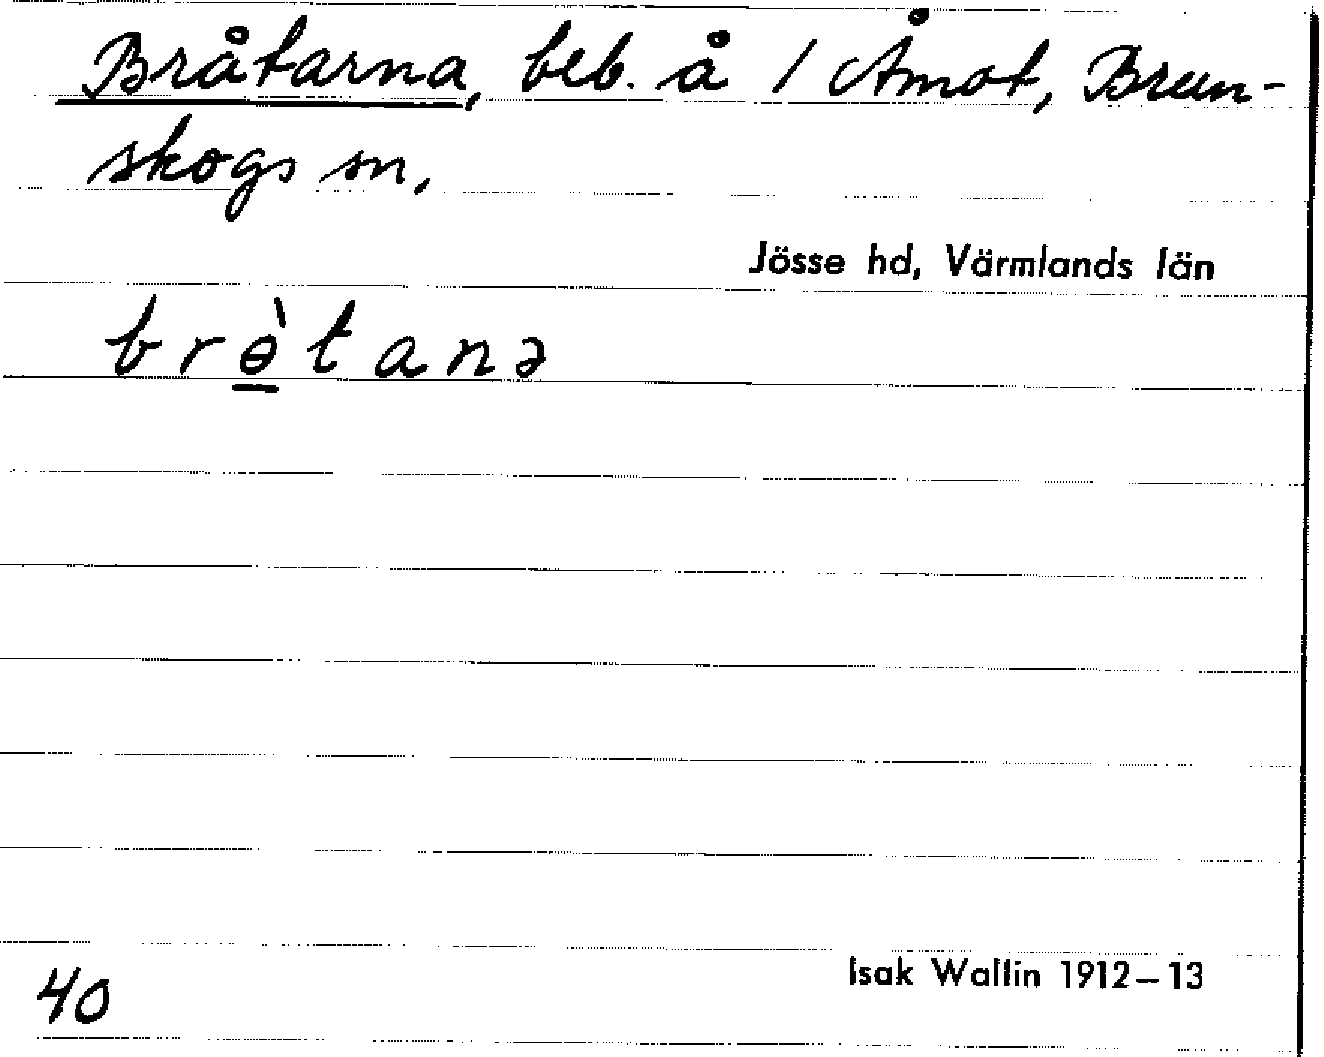 Bråtarna, beb. å 1 Åmot, Brun-
skogs sn,
Jösse hd, Värmlands län
brɵ̲̀tanə
40
Isak Wallin 1912–13